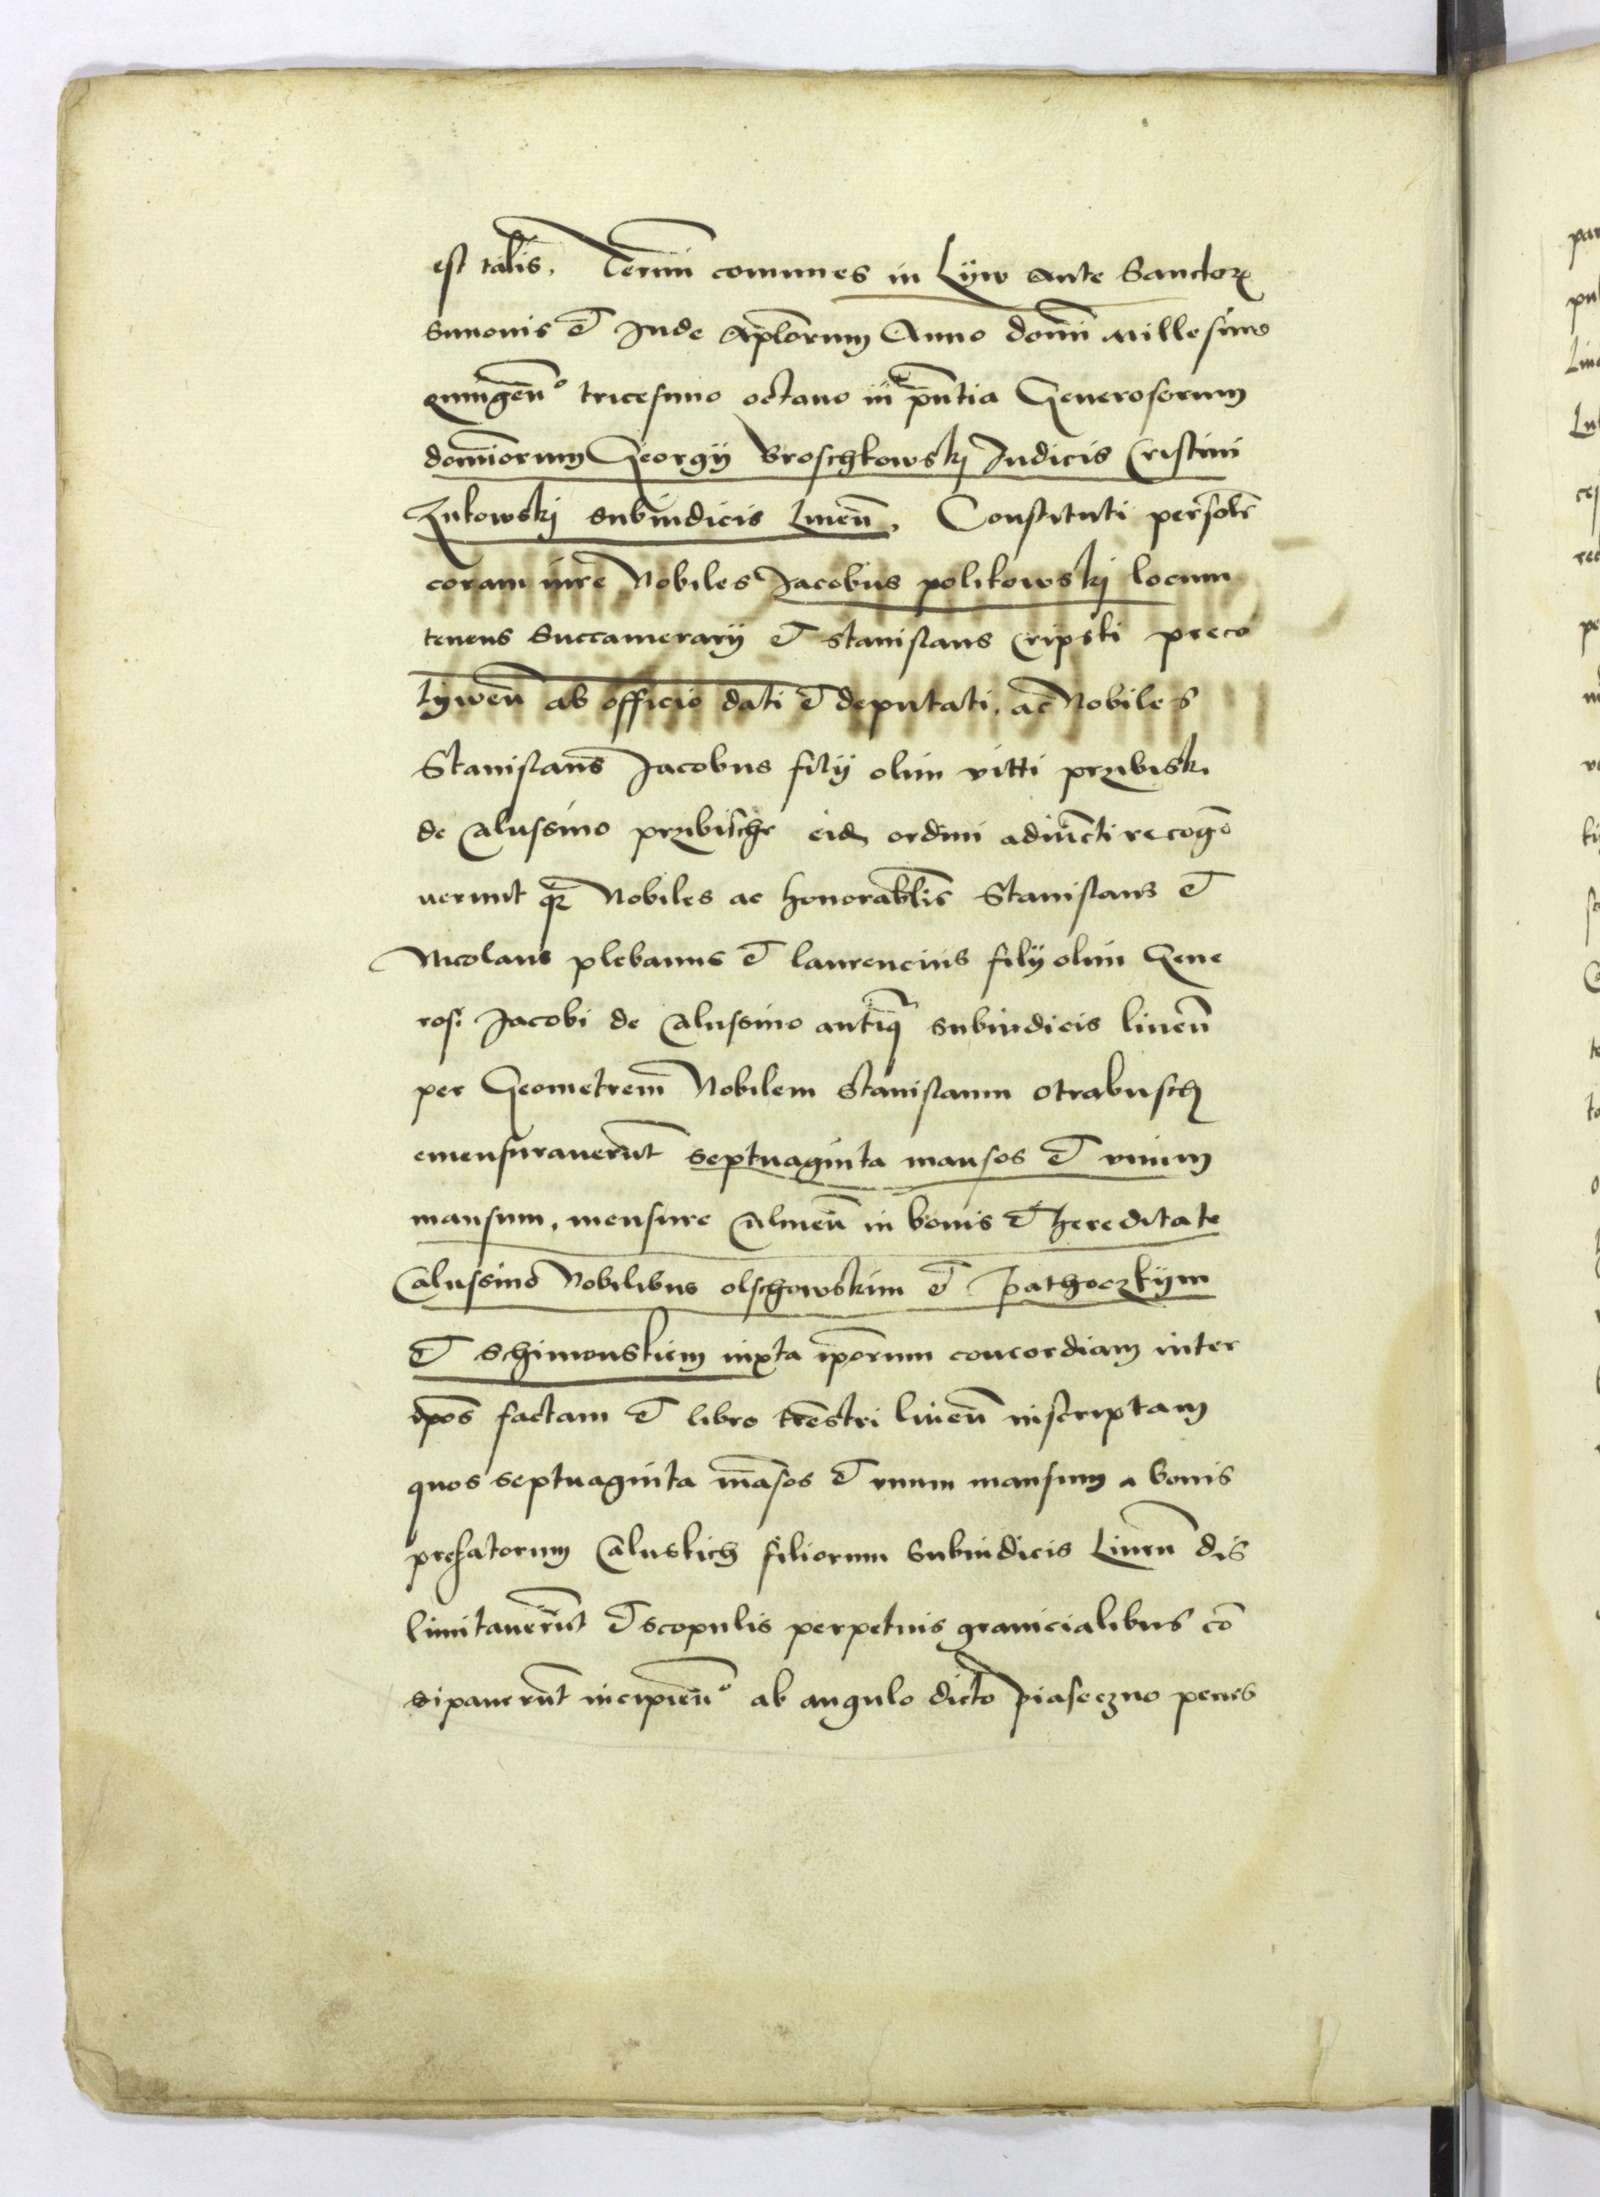 est talis. Termini comunes in Lyw ante Sanctor
Simonis et Jude Aplorum Anno domi Millesimo
quingen° tricesimo octavo in pntia Generosorum
dominorum Georgij Broschkowskj Judicis Cristini
Zukowskj subiudicis Liven. Constituti personlr
coram iure Nobiles Jacobus polikowskj locum
tenens Succamerarij et stanislaus Cripski preco
Lywen ab officio dati et deputati, ac Nobiles
Stanislaus Jacobus filij olim vitti przibisk.
de Calussino przibische eid ordini adiuncti recogno
verunt qr Nobiles ac honorablis Stanislaus et
Nicolaus plebanus et laurencius filij olim Gene
rosi Jacobi de Calussino antiq subiudicis liven
per Geometrem Nobilem Stanislaum otrabusch
emensuraverunt septuaginta mansos et unum
mansum, mensure Culmen in bonis et hereditate
Calussino Nobilibus olschowskim et Pathoczkym
et Schimonskiem iuxta iporum concordiam inter
ipos factam et libro trestri liven inscriptam
quos septuaginta masos et unum mansum a bonis
prefatorum Caluskich filiorum Subiudicis Liven dis
limitaverunt et scopulis perpetuis granicialibus co
sipaverunt incipien° ab angulo dicto Piaseczno penes